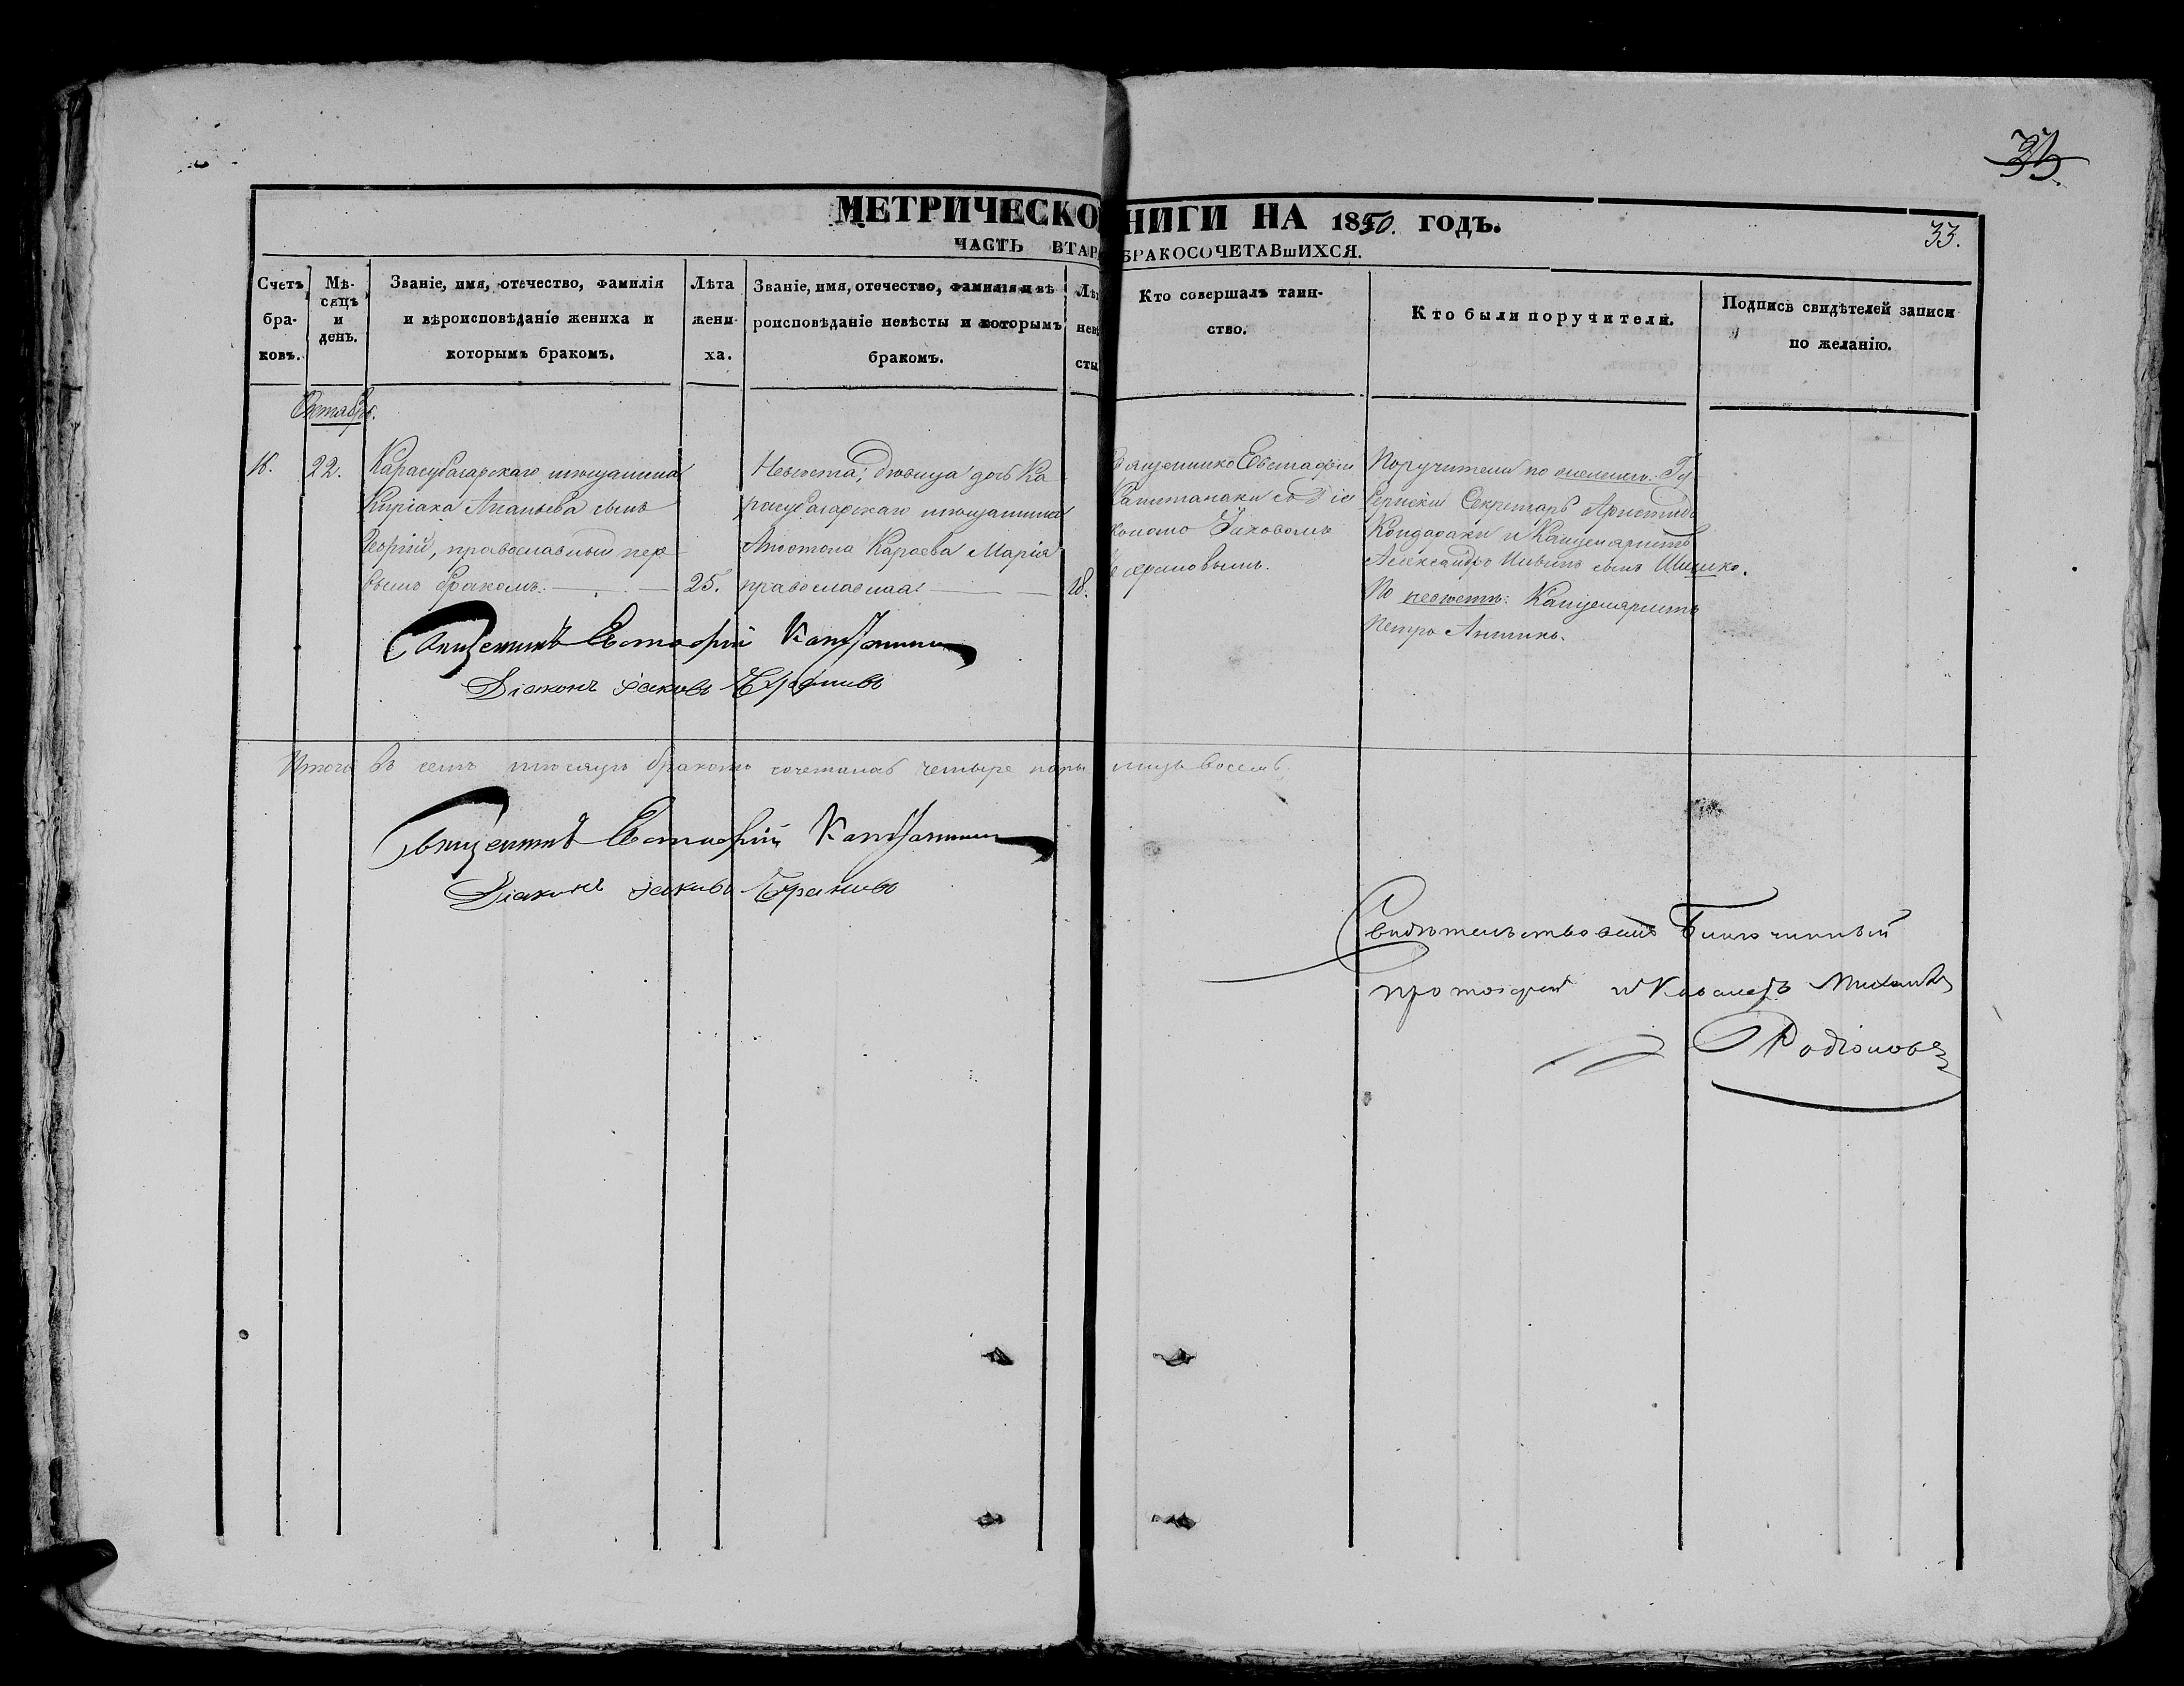 33.
МЕТРИЧЕСКО НИГИ НА 1850. ГОДЪ.
33.
ЧАСТЬ ВТАР БРАКОСОЧЕТАВшИХСЯ.
Счетъ бра- ковъ.
Мѣ- сяцъ и день.
Званіе, имя, отечество, фамилія и вѣроисповѣданіе жениха и которымъ бракомъ.
Лѣта жени- ха.
Званіе, имя, отечество, фамилія и вѣ роисповѣданіе невѣсты и которымъ бракомъ.
Лѣ невѣ сты
Кто совершалъ таин- ство.
Кто были поручители.
Подпись свидѣтелей записи по желанію.
Октябрь.
16.
22.
Карасубагарскаго мѣщанина
Киріака Ананьева сынъ
Георгій, православный пер
вымъ бракомъ.
25.
Невѣста, дѣвица дочь Ка
расубагарскаго мѣщанина
Апостола Караева Марія
православная
18.
Священникъ Евстафій
Капитанаки съ Діа
кономъ Іаковомъ
Поручители по женихѣ: Гу
бернскій Секретарь Аристидъ
Кондараки и Канцеляристъ
Александръ сынъ Шишко.
По невѣстѣ: Канцеляристъ
Петръ
Священникъ Евстафій Капитанаки
Діаконъ Іаковъ
Итого въ семъ мѣсяцѣ бракомъ сочеталась четыре пары лицъ восемь.
Священникъ Евстафій Капитанаки
Діаконъ Іаковъ
Свидѣтельствовалъ Благочинный
протоіерей и Кавалеръ Михаилъ
Родіоновъ